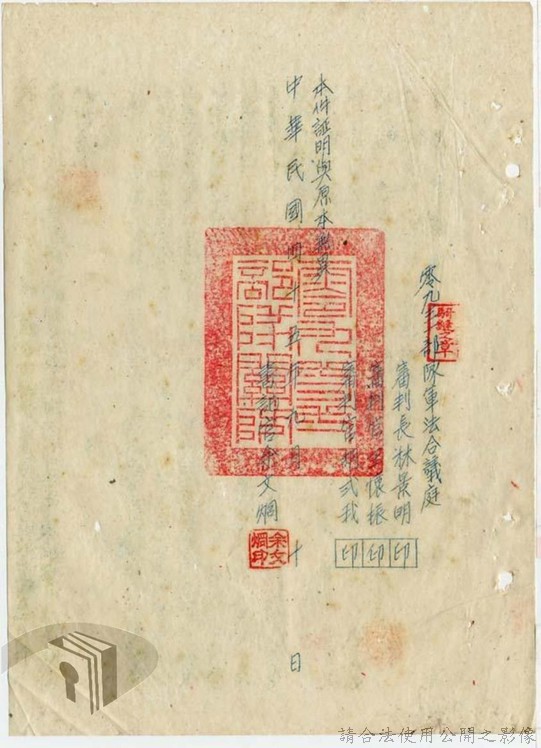 零九 部隊軍法合議庭
審判長林景明 印
審判官 懷振 印
審判官 貳我 印
本件証明與原本無異
中華民國四十五年九月十日
書記官余文炯
余文炯印
騎縫章
請合法使用公開之影像